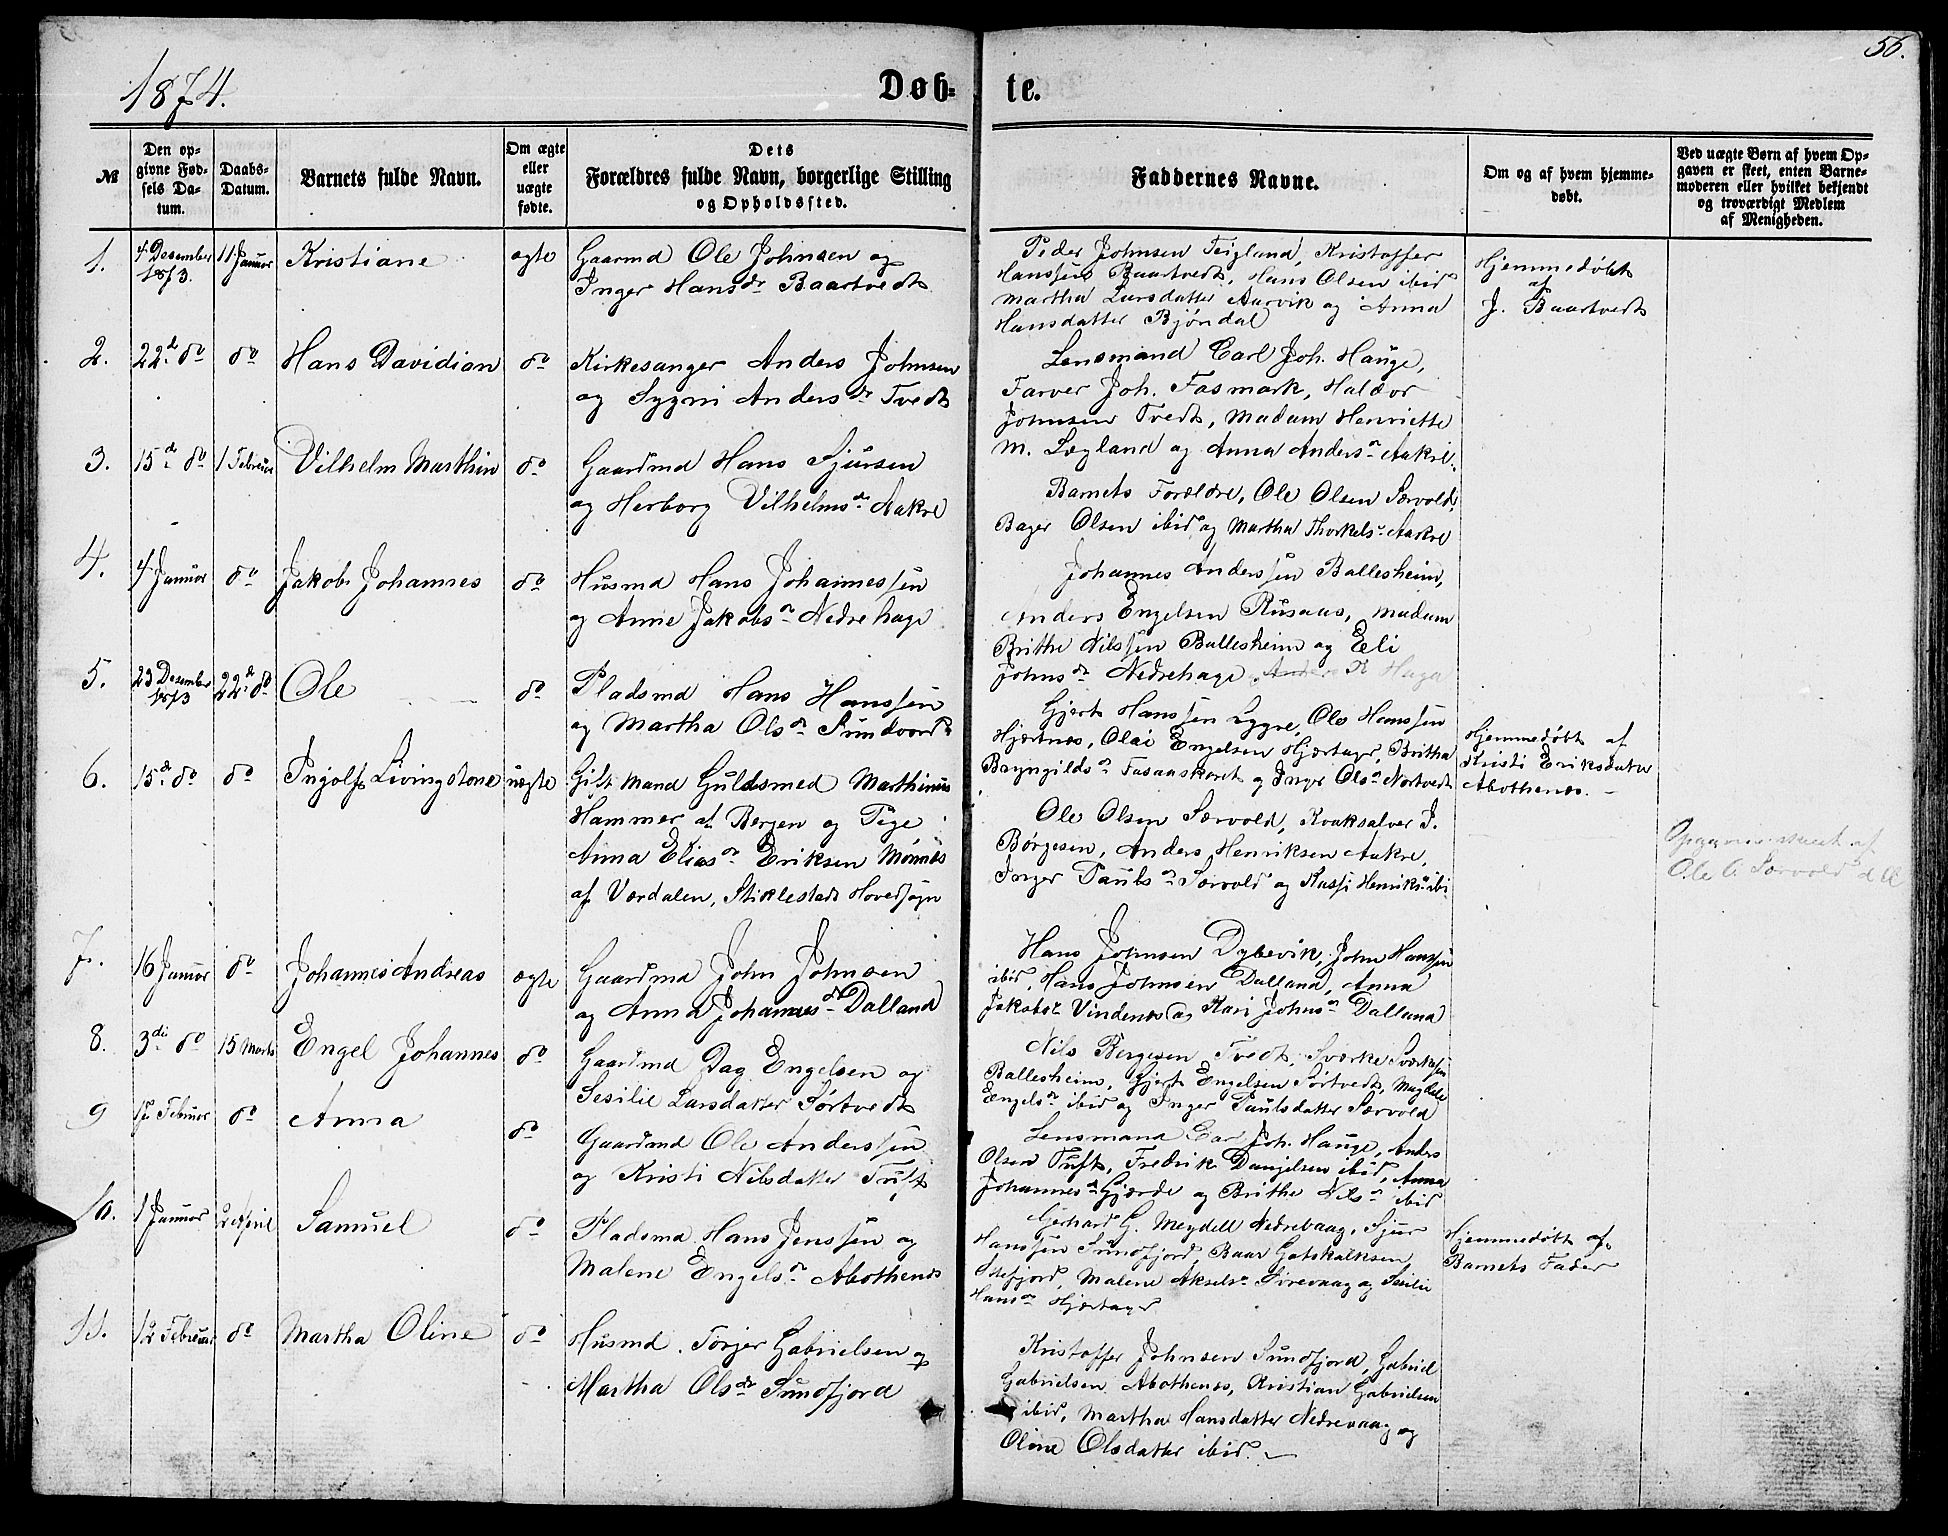 1874.
Døb-
te.
56.
№
Den op-
givne Fød-
sels Da-
tum.
Daabs-
Datum.
Barnets fulde Navn.
Om ægte
eller
uægte
fødte.
Dets
Forældres fulde Navn, borgerlige Stilling
og Opholdssted.
Faddernes Navne.
Om og af hvem hjemme-
døbt.
Ved uægte Børn af hvem Op-
gaven er skeet, enten Barne-
moderen eller hvilket bekjendt
og troværdigt Medlem
af Menigheden.
1.
4 Desember
1873.
11 Januar
Kristiane
ægte
Gaarmd Ole Johnsen og
Inger Hansdr Baartvedt
Peder Johnsen Teigland, Kristoffer
Hanssen Baartvedt, Hans Olsen ibid
Martha Larsdatter Aarvik og Anna
Hansdatter Bjöndal
Hjemmedøbt
af
J. Baartvedt
2.
22d do
do
Hans Davidian
do
Kirkesanger Anders Johnsen
og Sygni Andersdr Tvedt
Lensmand Carl Joh. Hauge,
Farver Joh. Fasmark, Haldor
Johnsen Tvedt, Madam Henriette
M. Løgland og Anna Andersdr Aakre.
3.
15d do
1 Februar
Vilhelm Marthin
do
Gaardmd Hans Sjursen
og Herborg Vilhelmsdr Aakre
Barnets Forældre, Ole Olsen Særvold,
Bager Olsen ibid og Martha Thorkels- Aakre
4.
4 Januar
do
Jakob Johannes
do
Husmd Hans Johannessen
og Anne Jakobsdr Nedrehage
Johannes Anderssen Ballesheim,
Anders Engelsen Rusaas, Madam
Brithe Nilssen Ballesheim og Eli
Johnsdr Nedrehage
5.
23 Desember
1873
22d do
Ole
do
Pladsmd Hans Hanssen
og Martha Olsdr Sundvord
Gjert Hanssen Lygre, Ole Hanssen
Hjartnes, Olai Engelsen Hjartager, Britha
Bryngildsdr Fasaaskaret og Inger Olsdr Nortvedt
Hjemmedøbt af
Kristi Eriksdatter
Abothenes.
6.
15d do
do
Ingolf Livingstone
uægte
Gift Mand Guldsmed Marthinus
Hammer af Bergen og Pige
Anna Eliasdr Eriksen Mønnes
af Værdalen, Stiklestads Hovedsogn
Ole Olsen Særvold, Kvaksalver J.
Børgesen, Anders Henriksen Aakre,
Inger Paulsdr Særvold og Kassi Henriksdr ibi-
Ole O. Særvold
7.
16 Januar
do
Johannes Andreas
ægte
Gaardmd John Johnsen
og Anna Johannesdr Dalland
Hans Johnsen Dybevik, John Hanssen
ibid, Hans Johnsen Dalland, Anna
Jakobsdr Vindenes og Kari Johnsdr Dalland
8.
3die do
15 Marts
Engel Johannes
do
Gaardmd Dag Engelsen og
Sesilie Larsdatter Sørtvedt
Nils Bergesen Tvedt, Sværke Sværkesen
Ballesheim, Gjert Engelsen Sørtvedt, Magdele
Engelsdr ibid og Inger Paulsdatter Særvold
9
Februar
do
Anna
do
Gaardmd Ole Anderssen
og Kristi Nilsdatter Tuft
Lensmand Carl Joh. Hauge, Anders
Olsen Tuft, Fredrik Danjelsen ibid, Anna
Johannesdr Gjærde og Brithe Nilsdr ibid
10.
1 Januar
2 April
Samuel
do
Pladsmd Hans Jenssen og
Malene Engelsdr Abothenes
Gerhard G. Meydell Nedrevaag, Sjur
Hanssen Sundfjord, Baar Gotskalksen
Malene Akselsdr Sørevaag og Sesilie
Hansdr Hjartager
Hjemmedøbt af
Barnets Fader
11.
12 Februar
do
Martha Oline
do
Husmd. Torjer Gabrielsen og
Martha Olsdr Sundfjord
Kristoffer Johnsen Sundfjord, Gabriel
Gabrielsen Abothenes, Kristian Gabrielsen
ibid, Martha Hansdatter Nedrevaag og
Oline Olsdatter ibid.